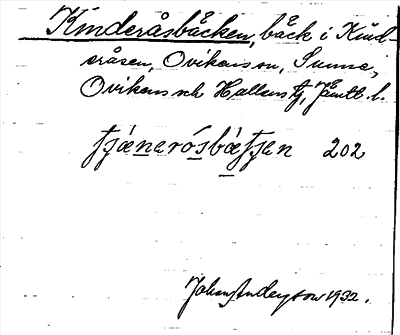 Kinderåsbäcken, bäck i Kind-
eråsen, Ovikens sn, Sunne,
Ovikens och Hallens tg, Jämtl. l.
202
Johan Anderson 1932.